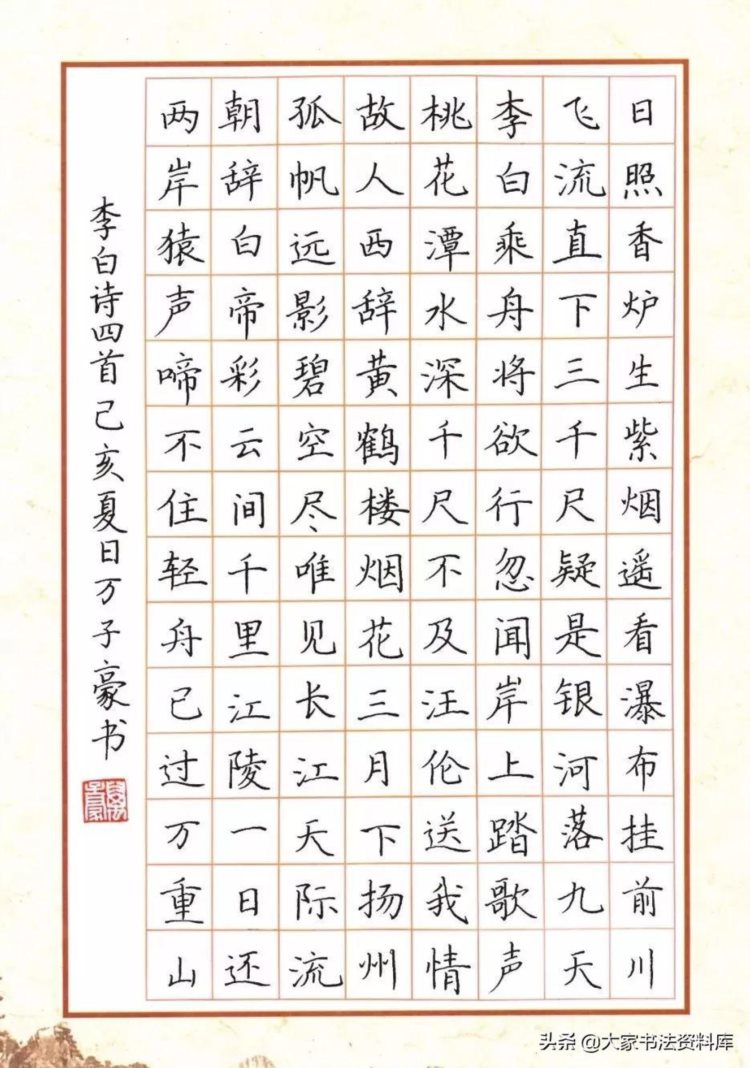 日照香炉生紫烟遥看瀑布挂前川
飞流直下三千尺疑是银河落九天
李白乘舟将欲行忽闻岸上踏歌声
桃花潭水深千尺不及汪伦送我情
故人西辞黄鹤楼烟花三月下扬州
孤帆远影碧空尽唯见长江天际流
朝辞白帝彩云间千里江陵一日还
两岸猿声啼不住轻舟已过万重山
李白诗四首己亥夏日万子豪书
头条 @大家书法资料库